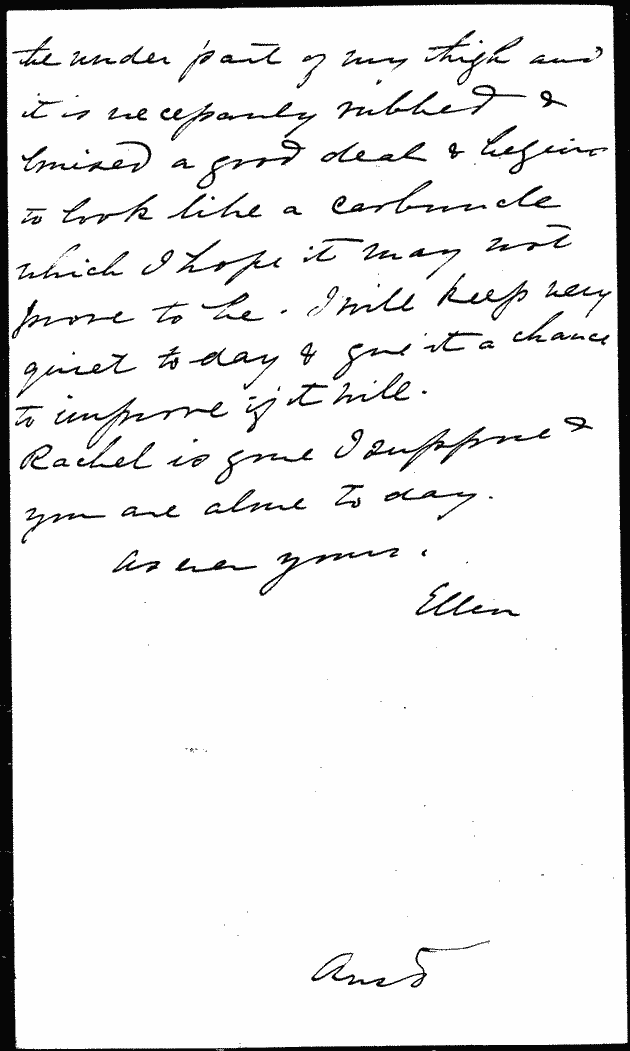 the under part of my thigh and
it is necessarily rubbed &
bruised a good deal & begins
to look like a carbuncle
which I hope it may not
prove to be. I will keep very
quiet to day & give it a chance
to improve if it will.
Rachel is gone I suppose &
you are alone to day.
As ever yours.
Ellen
Ansd